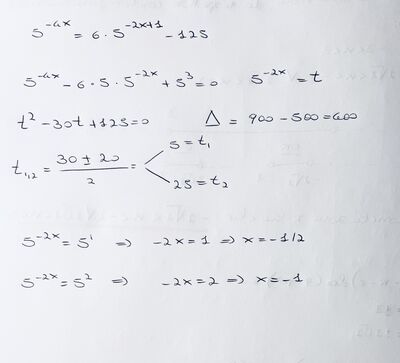 5^{-4x} = 6 · 5^{-2x+1} - 125
5^{-4x} - 6 · 5 · 5^{-2x} + 5^3 = 0   5^{-2x} = t
t^2 - 30t + 125 = 0   Δ = 900 - 500 = 400
t_{1,2} = \frac{30 ± 20}{2} =
5 = t_1
25 = t_2
5^{-2x} = 5^1 ⇒ -2x = 1 ⇒ x = -1/2
5^{-2x} = 5^2 ⇒ -2x = 2 ⇒ x = -1